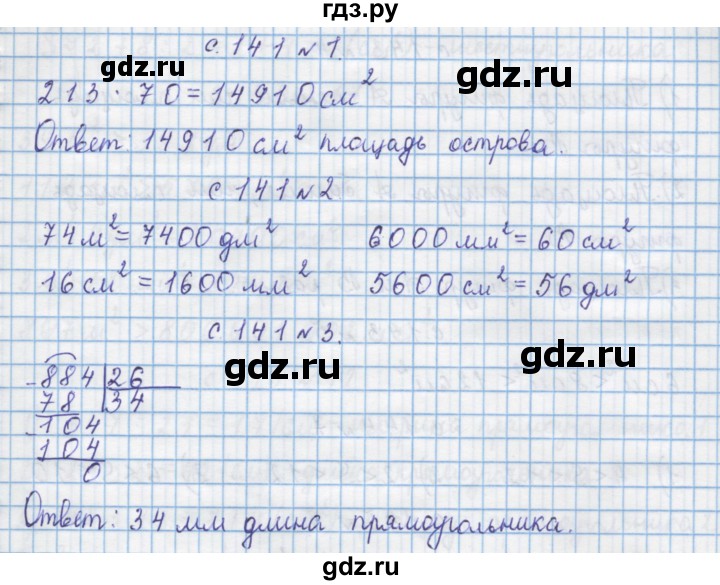 гдз.ру
с. 141 №1.
gdz.ru gdz.ru
213 · 70 = 14910 см²
Ответ: 14910 см² площадь острова.
с. 141 №2
gdz.ru gdz.ru
74 м² = 7400 дм² 6000 мм² = 60 см²
16 см² = 1600 мм² 5600 см² = 56 дм²
с. 141 №3.
gdz.ru gdz.ru
- 884 | 26
78 | 34
- 104
104
0
gdz.ru gdz.ru
Ответ: 34 мм длина прямоугольника.
gdz.ru